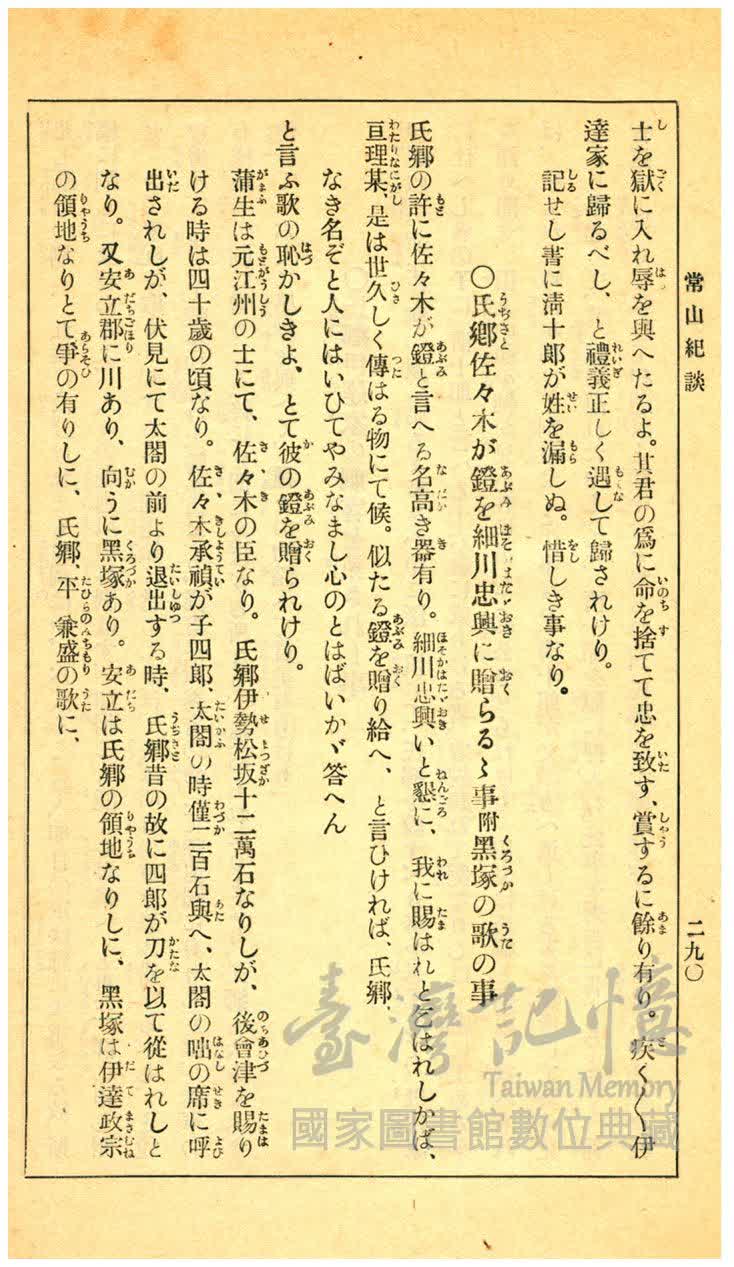 常山紀談
二九〇
士を獄に入れ辱を與へたるよ。其君の爲に命を捨てて忠を致す、賞するに餘り有り。疾く〳〵伊
達家に歸るべし、と禮義正しく遇して歸されけり。
記せし書に淸十郎が姓を漏しぬ。惜しき事なり。
〇氏鄕佐々木が鐙を細川忠興に贈らるゝ事附黑塚の歌の事
氏鄕の許に佐々木が鐙と言へる名高き器有り。細川忠興いと懇に、我に賜はれと乞はれしかば、
亘理某、是は世久しく傳はる物にて候。似たる鐙を贈り給へ、と言ひければ、氏鄕、
なき名ぞと人にはいひてやみなまし心のとはばいかゞ答へん
と言ふ歌の恥かしきよ、とて彼の鐙を贈られけり。
蒲生は元江州の士にて、佐々木の臣なり。氏鄕伊勢松坂十二萬石なりしが、後會津を賜り
ける時は四十歲の頃なり。佐々木承禎が子四郎、太閤の時僅二百石與へ、太閤の咄の席に呼
出されしが、伏見にて太閤の前より退出する時、氏鄕昔の故に四郎が刀を以て從はれしと
なり。又安立郡に川あり、向うに黑塚あり。安立は氏鄕の領地なりしに、黑塚は伊達政宗
の領地なりとて爭の有りしに、氏鄕、平兼盛の歌に、
臺灣記憶
Taiwan Memory
國家圖書館數位典藏